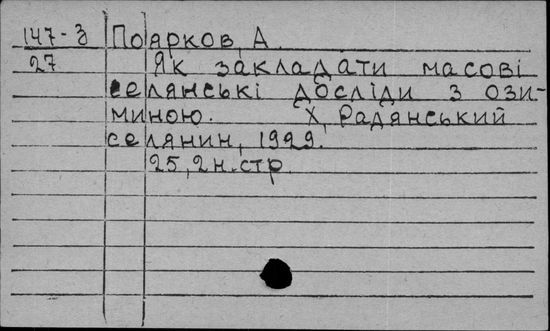 147-3 Поярков, А.
27 Як закладати масові
селянські досліди з ози-
миною. Х, Радянський
селянин, 1929.
25, 2 н. стр.